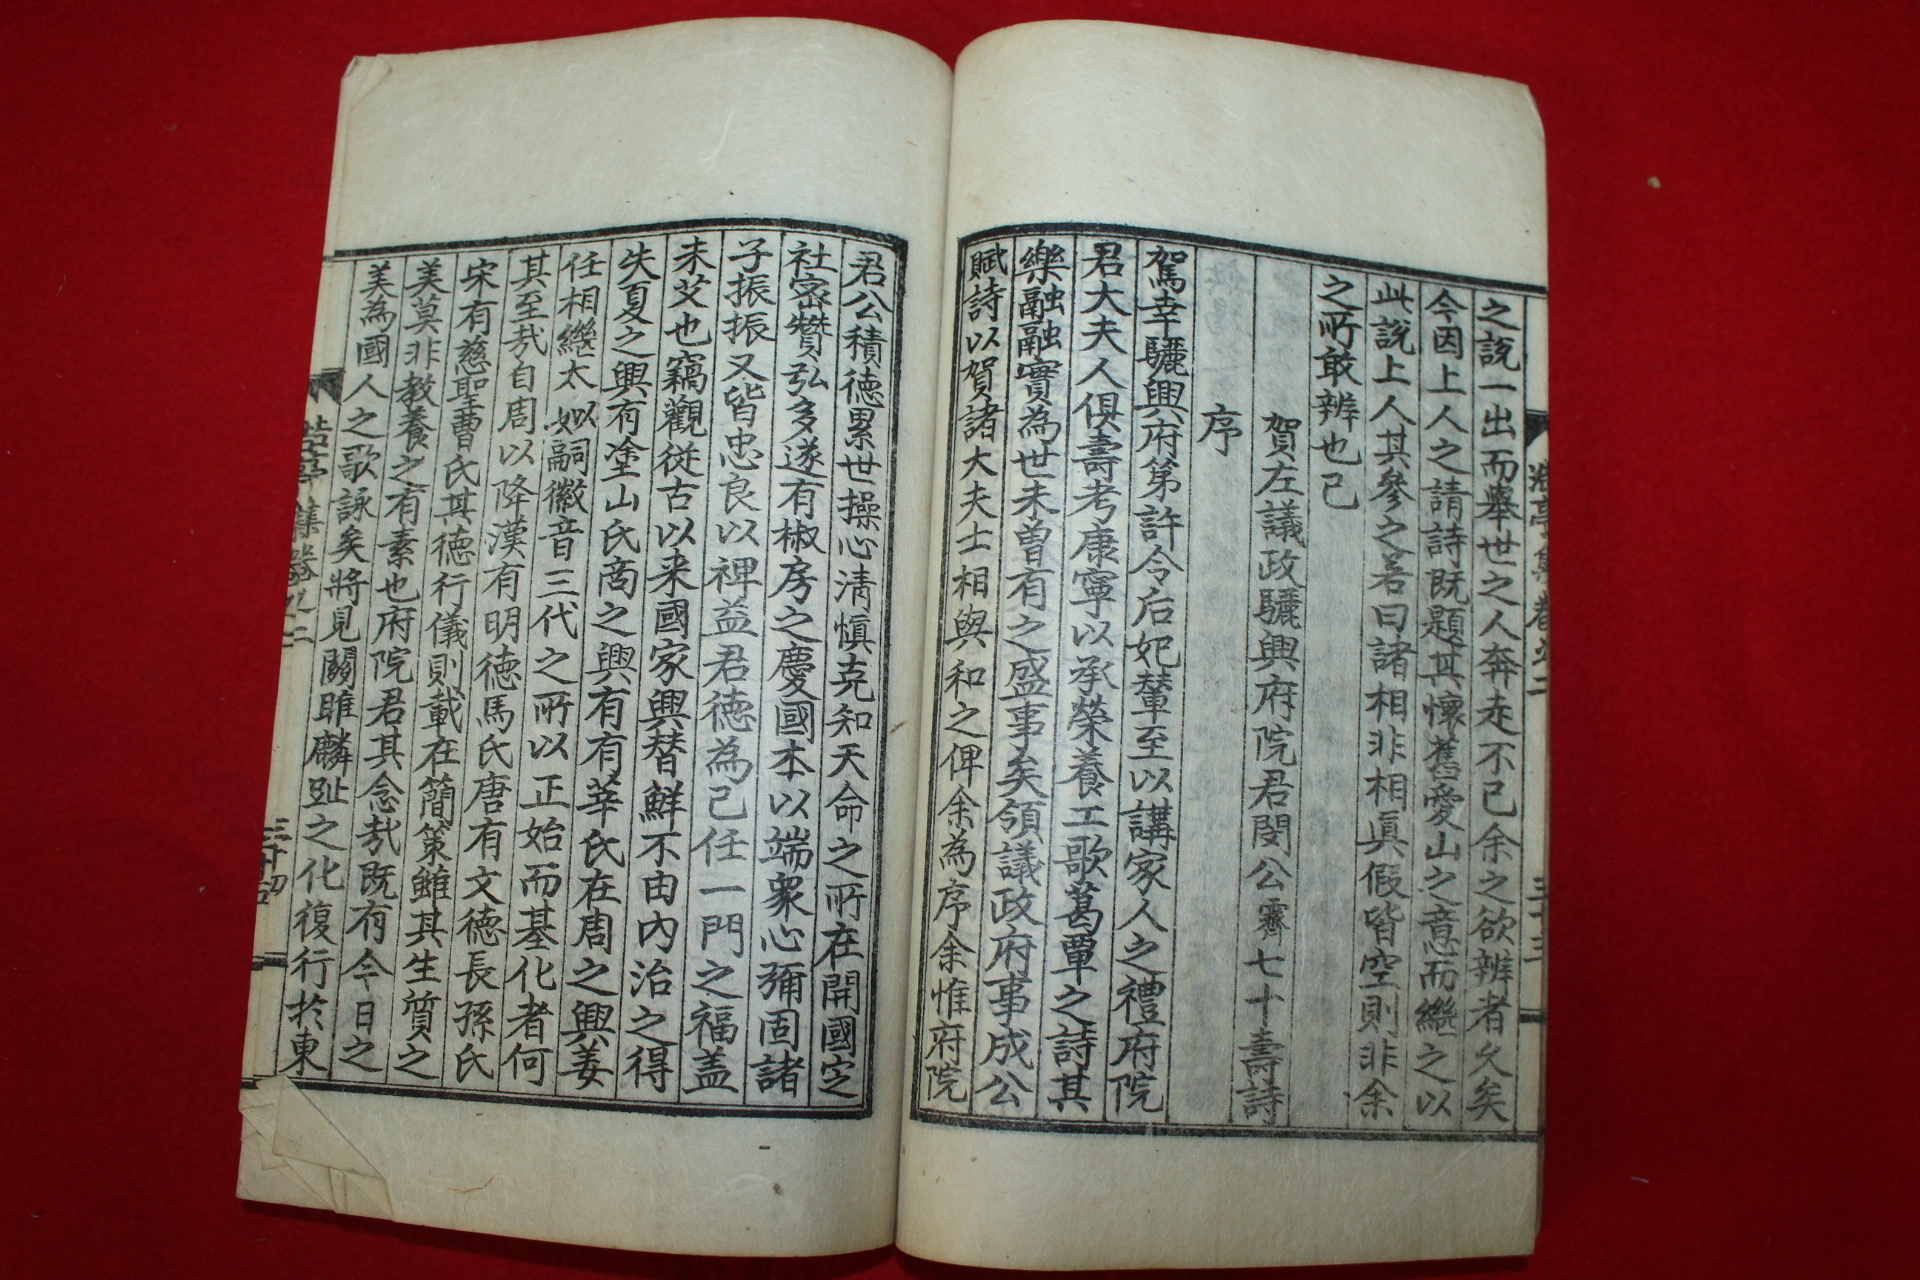 之說一出而舉世之人奔走不已余之欲辨者久矣
今因上人之請詩既題其懷舊愛山之意而繼之以
此說上人其參之若曰諸相非相眞假皆空則非余
之所敢辨也已
賀左議政驪興府院君閔公霽七十壽詩
序
駕幸驪興府第許令后妃輦至以講家人之禮府院
君大夫人俱壽考康寧以承榮養工歌葛覃之詩其
樂融融實為世未曾有之盛事矣領議政府事成公
賦詩以賀諸大夫士相與和之俾余為序余惟府院
君公積德累世操心清愼克知天命之所在開國定
社密贊弘多遂有椒房之慶國本以端衆心彌固諸
子振振又皆忠良以裨益君德為己任一門之福盖
未艾也竊觀從古以来國家興替鮮不由內治之得
失夏之興有塗山氏商之興有有莘氏在周之興姜
任相繼太姒嗣徽音三代之所以正始而基化者何
其至㢤自周以降漢有明德馬氏唐有文德長孫氏
宋有慈聖曹氏其德行儀則載在簡策雖其生質之
美莫非教養之有素也府院君其念㢤既有今日之
美為國人之歌詠矣將見關雎麟趾之化復行於東
亭集卷之二